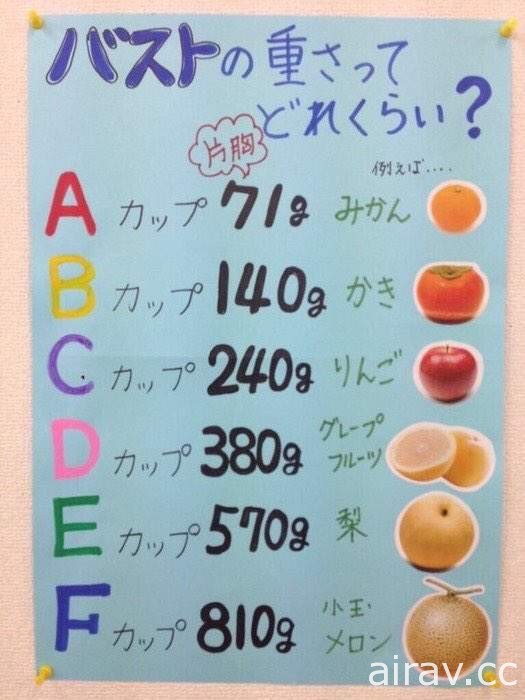 バストの重さって
どれくらい?
片胸
例えば....
A カップ 71g みかん
B カップ 140g かき
C カップ 240g りんご
D カップ 380g グレープ
フルーツ
E カップ 570g 梨
F カップ 810g 小玉・
メロン
airav.cc